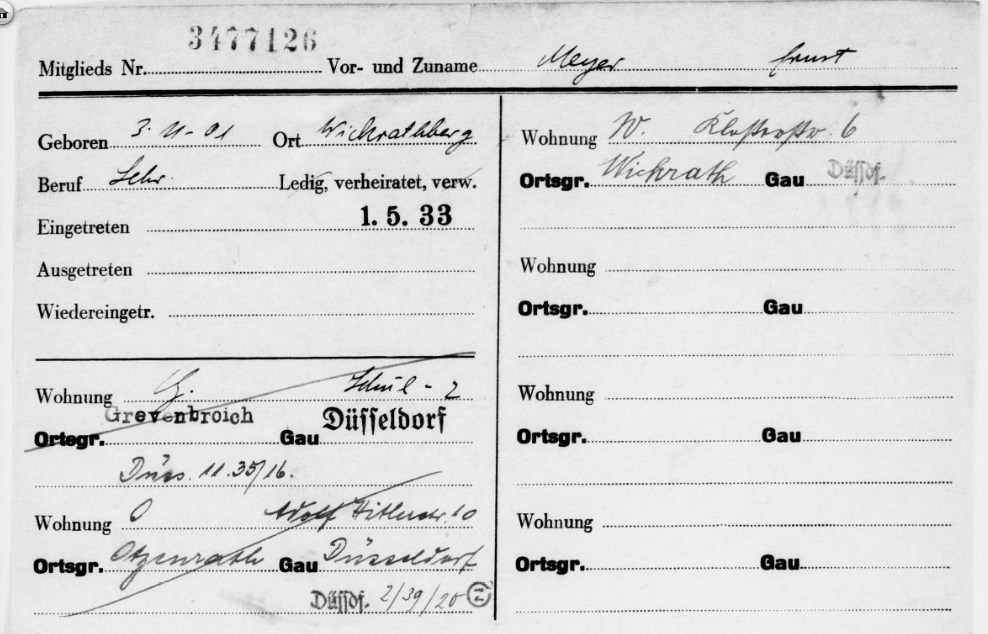 3477126
Mitglieds Nr. Vor- und Zuname Meyer Ernst
Geboren 3. 11 - 01 Ort Wickrathberg
Beruf Lehr.
Ledig, verheiratet, verw.
Eingetreten 1. 5. 33
Ausgetreten
Wiedereingetr.
Wohnung G. Schul - 2
Ortsgr. Grevenbroich Gau Düsseldorf
Düss. 11.35/16.
Wohnung O Adolf Hitlerstr. 10
Ortsgr. Otzenrath Gau Düsseldorf
Düssdf. 2/39/20
Wohnung W. 6
Ortsgr. Wickrath Gau Düssdf.
Wohnung
Ortsgr. Gau
Wohnung
Ortsgr. Gau
Wohnung
Ortsgr. Gau